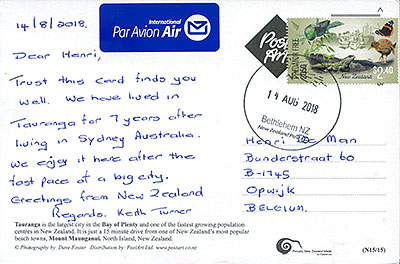 14/8/2018.
International
Par Avion Air
Dear Henri,
Trust this card finds you
well. We have lived in
Tauranga for 7 years after
living in Sydney Australia.
We enjoy it here after the
fast pace of a big city.
Greetings from New Zealand
Regards. Keith Turner
Tauranga is the largest city in the Bay of Plenty and one of the fastest growing population
centres in New Zealand. It is just a 15 minute drive from one of New Zealand's most popular
beach towns, Mount Maunganui, North Island, New Zealand.
© Photography by: Dave Foster Distribution by: PostArt Ltd. www.postart.co.nz
PREDATOR FREE
2050
New Zealand
$2.40
14 AUG 2018
Bethlehem NZ
New Zealand Post
Henri De Man
Bunderstraat 60
B-1745
Opwijk
BELGIUM.
(N15/15)